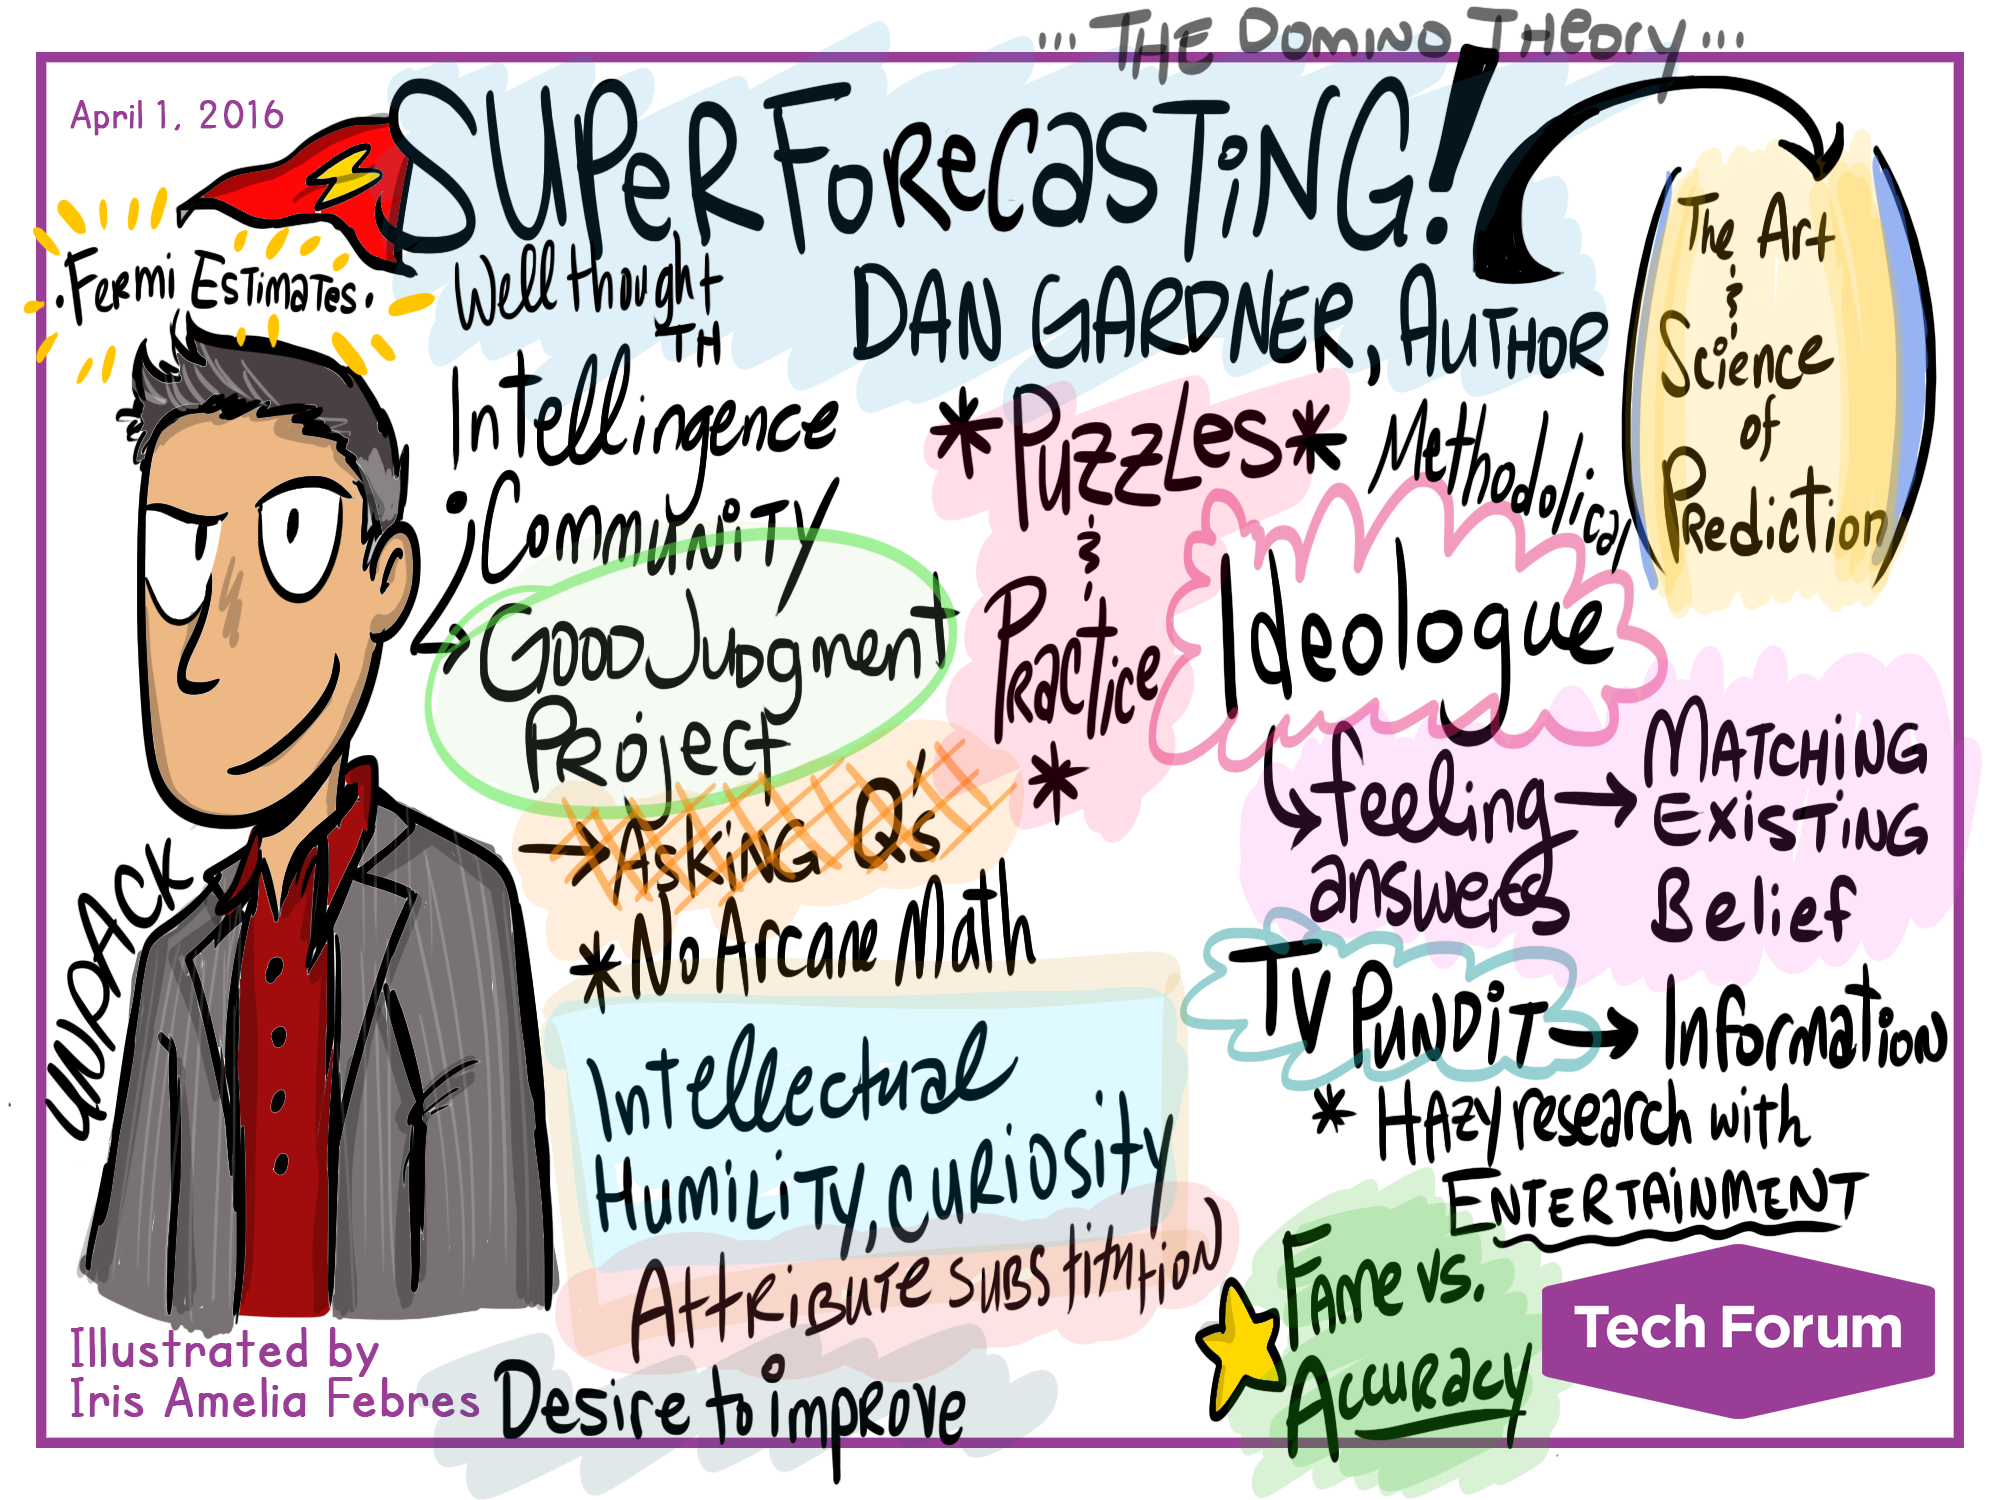 ... THE DOMINO THEORY ...
April 1, 2016
SUPERFORECASTING!
DAN GARDNER, AUTHOR
The Art
&
Science
of
Prediction
• FERMI ESTIMATES •
Well thought
TH
Intellingence
Community
GOOD JUDGMENT
PROJECT
→ ASKING Q's
* No Arcane Math
Intellectual
HUMILITY, CURIOSITY
ATTRIBUTE SUBSTITUTION
Desire to improve
UNPACK
* PUZZLES *
&
PRACTICE
*
Methodolical
Ideologue
feeling → MATCHING
answers EXISTING
Belief
TV PUNDIT → INFORMATION
* HAZY research with
ENTERTAINMENT
FAME VS.
ACCURACY
Tech Forum
Illustrated by
Iris Amelia Febres